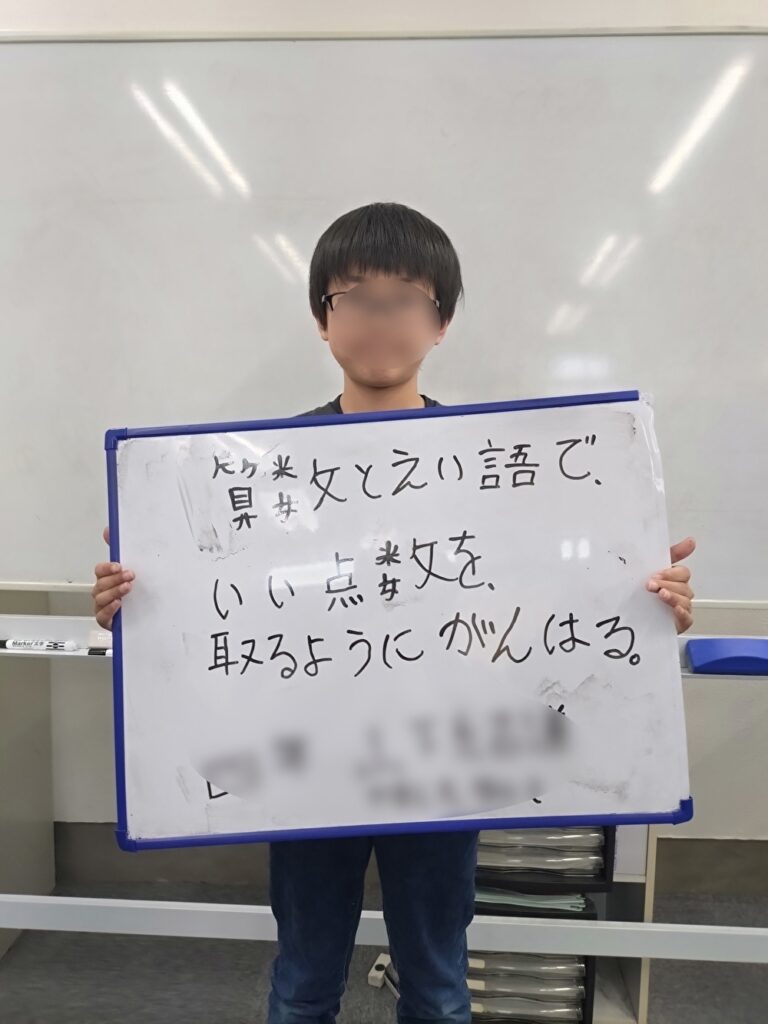 算数とえい語で、
いい点数を、
取るようにがんはる。
Marker